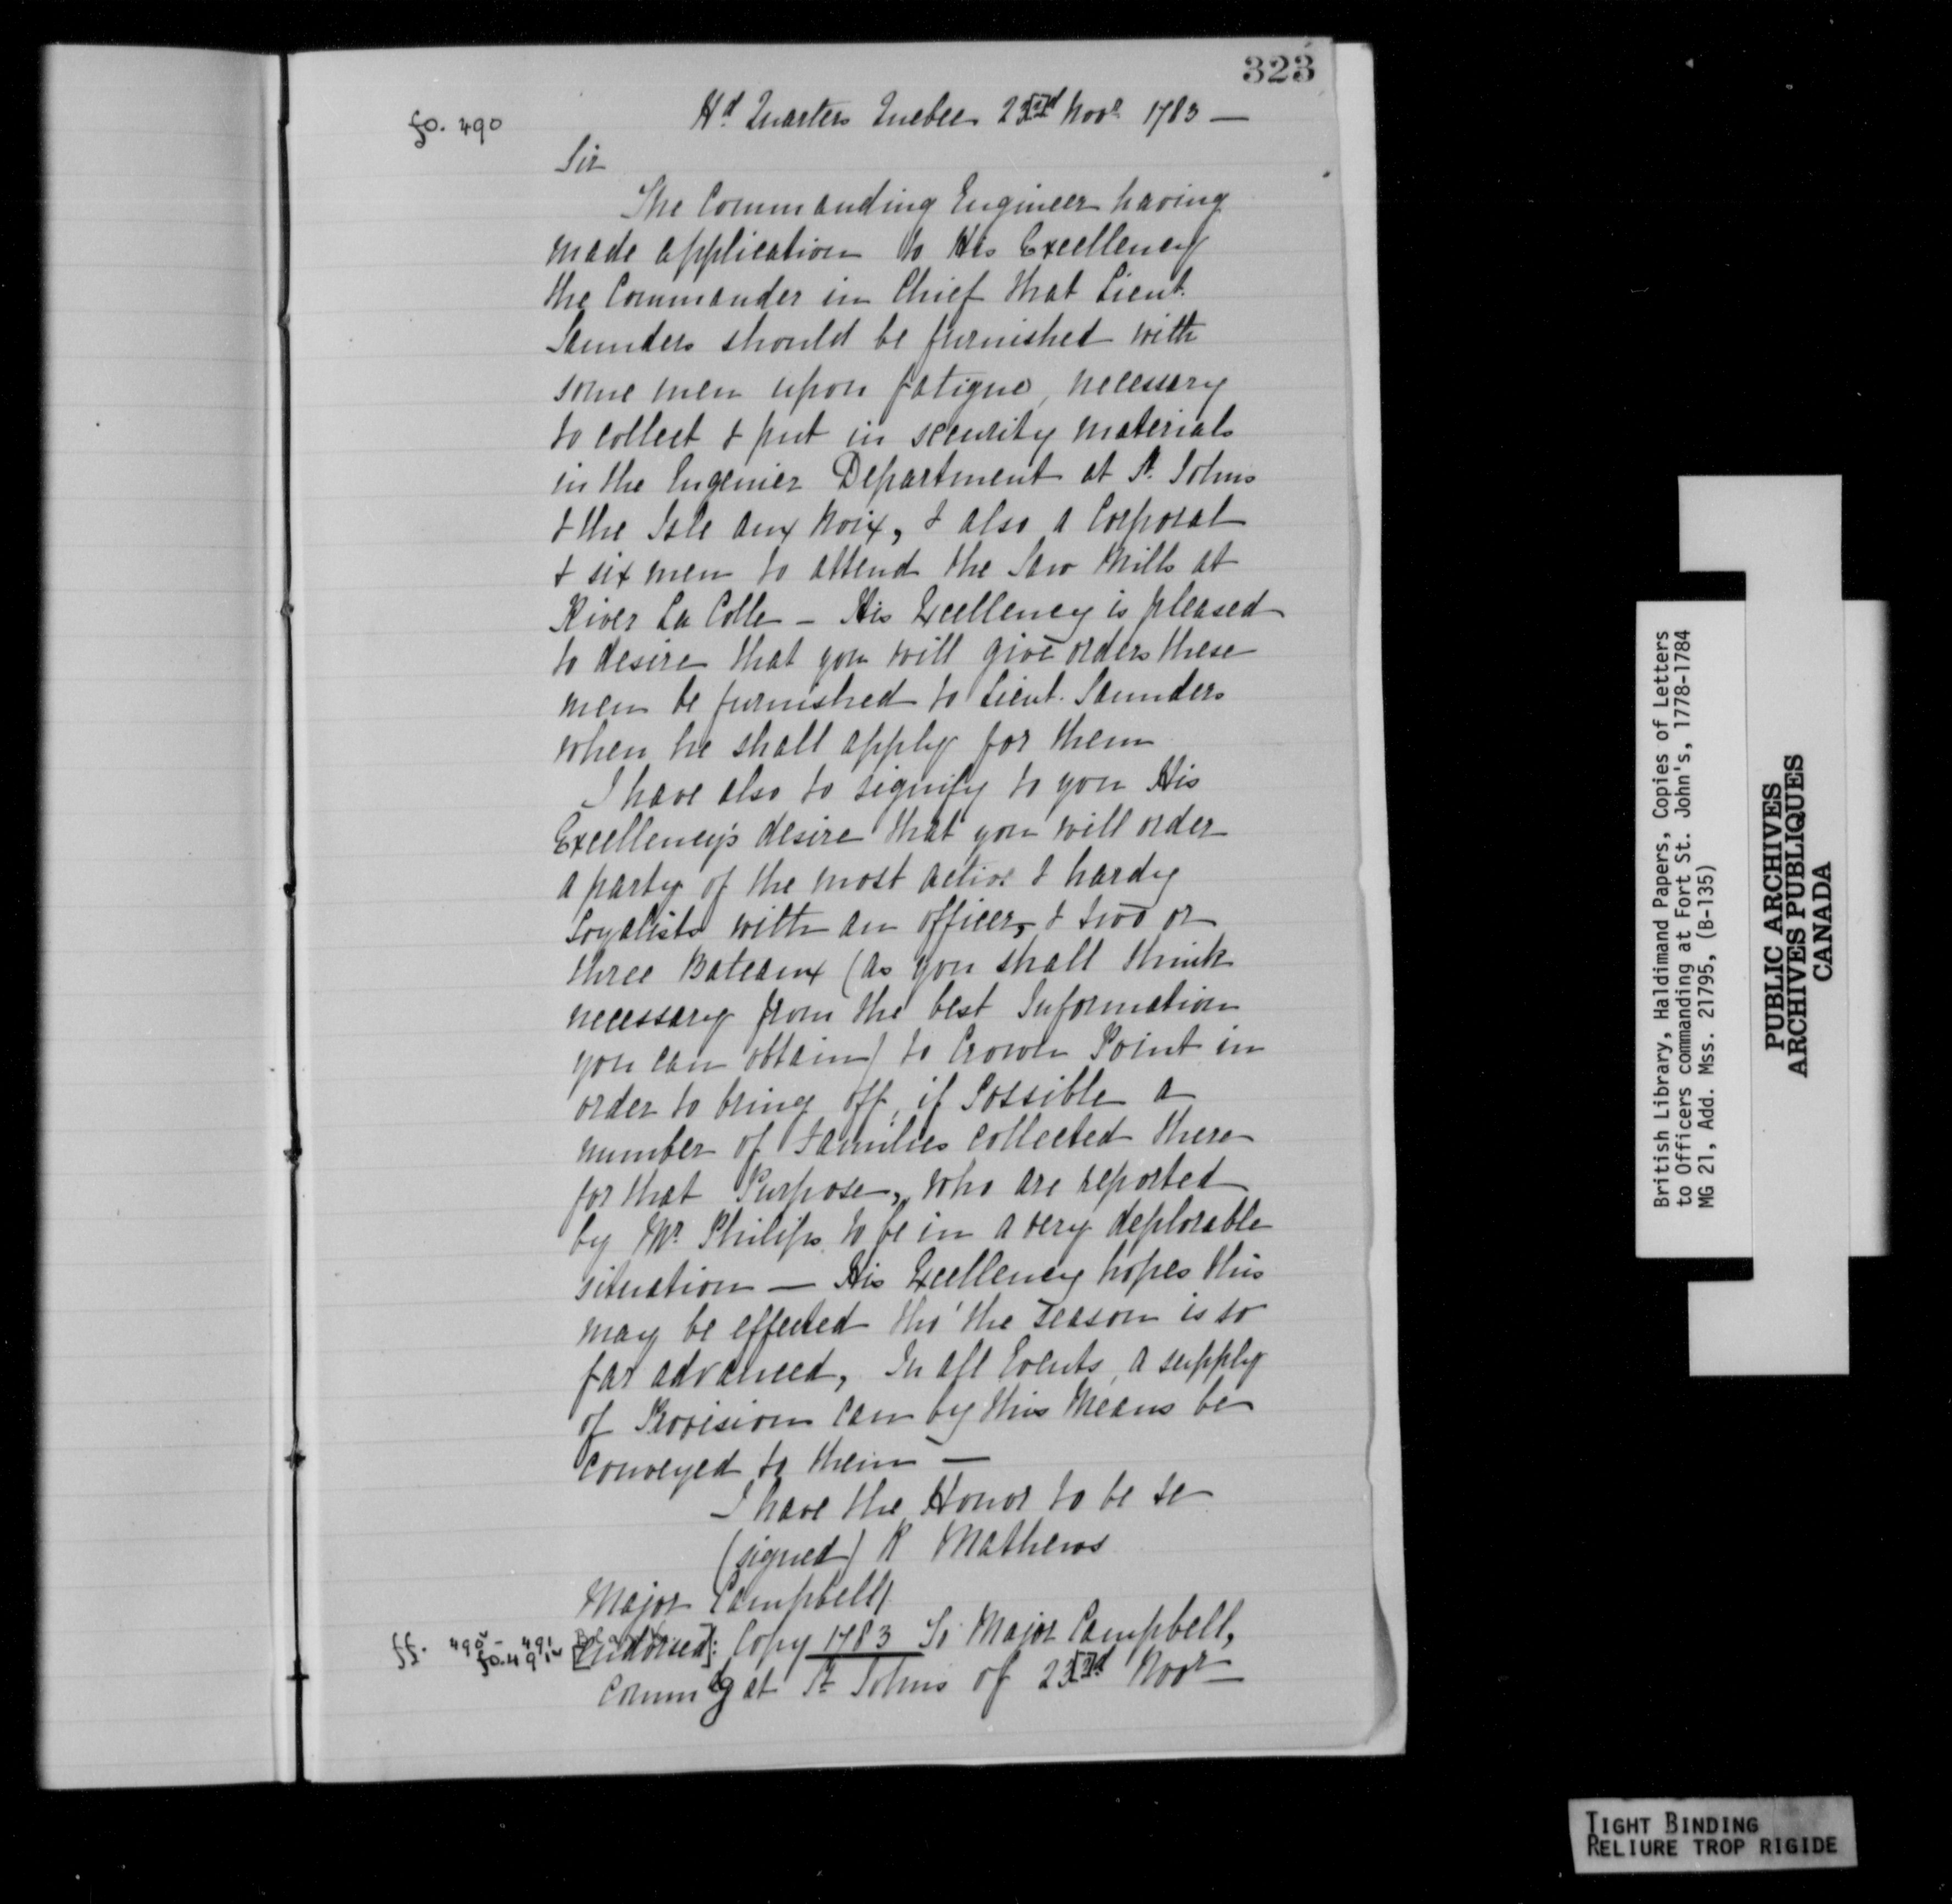 323
fo. 490
Hd Quarters Quebec 23[rd] Novr 1783 —
Sir
The Commanding Engineer having
made application to His Excellency
the Commander in Chief that Lieut.
Saunders should be furnished with
some men upon fatigue, necessary
to collect & put in security materials
in the Ingenier Department at St. Johns
& the Isle aux Noix, & also a Corporal
& six men to attend the Saw Mills at
River La Colle – His Excellency is pleased
to desire that you will give orders these
men be furnished to Lieut. Saunders
when he shall apply for them
I have also to signify to you His
Excellency's desire that you will order
a party of the most active & hardy
Loyalists with an officer, & two or
three Bateaux (as you shall think
necessary from the best Information
you can obtain) to Crown Point in
order to bring off, if Possible a
number of Families collected there
for that Purpose, who are reported
by Mr. Philips to be in a very deplorable
situation — His Excellency hopes this
may be effected tho' the season is so
far advanced, In all Events, a supply
of Provision can by this Means be
conveyed to them —
I have the Honor to be &c
(signed) R Mathews
Major Campbell
ff. 490v - 491 Blank
fo. 491v [Endorsed]: Copy 1783 To Major Campbell,
Commdg at St Johns of 23[rd] Novr
British Library, Haldimand Papers, Copies of Letters
to Officers commanding at Fort St. John's, 1778-1784
MG 21, Add. Mss. 21795, (B-135)
PUBLIC ARCHIVES
ARCHIVES PUBLIQUES
CANADA
TIGHT BINDING
RELIURE TROP RIGIDE